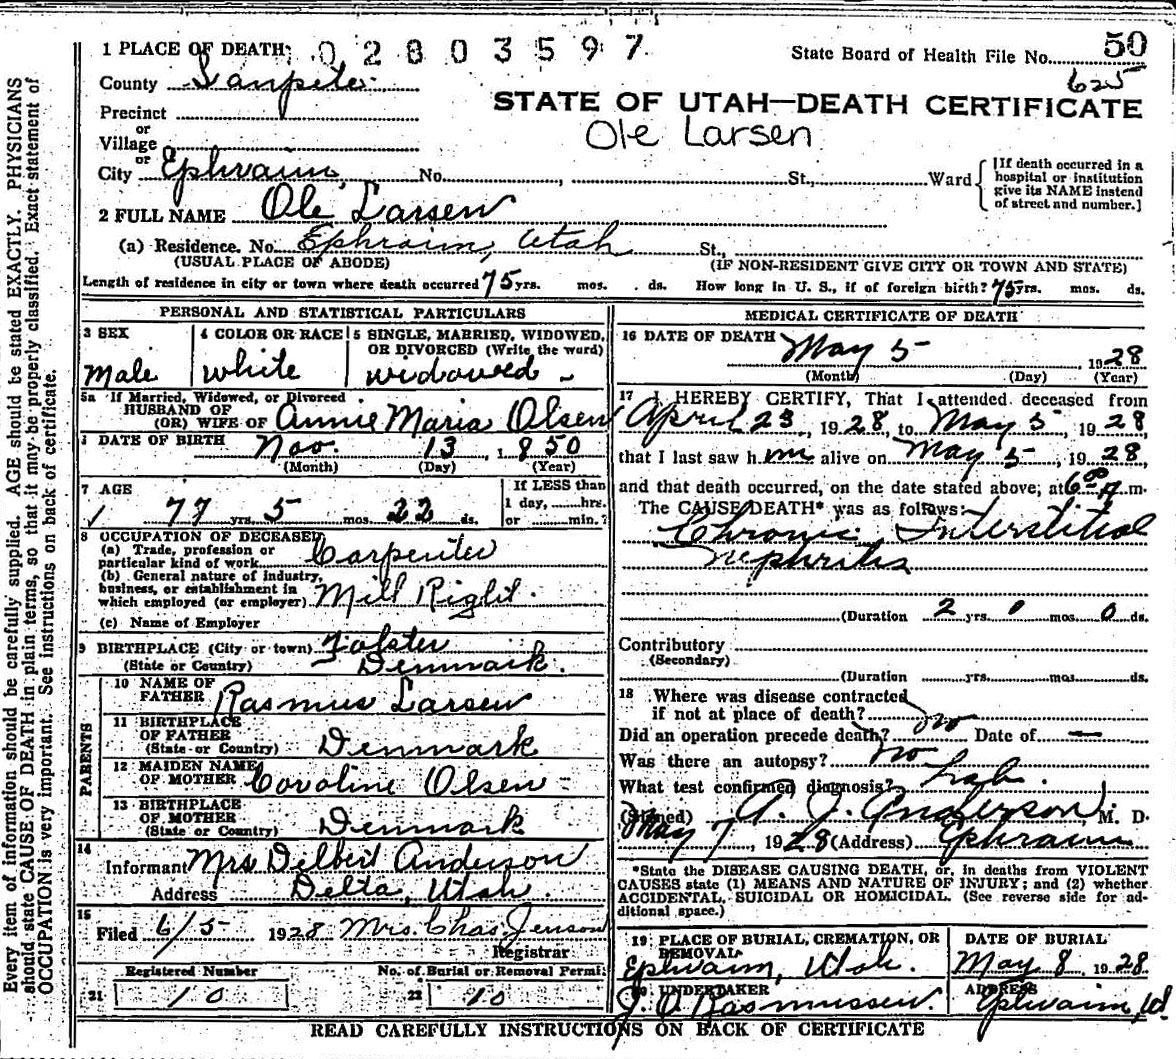 1 PLACE OF DEATH: 02803597
State Board of Health File No. 50
625
County Sanpete
STATE OF UTAH—DEATH CERTIFICATE
Precinct
or
Village
Ole Larsen
or
City Ephraim, No. , St., Ward
[If death occurred in a
hospital or institution
give its NAME instead
of street and number.]
2 FULL NAME Ole Larsen
(a) Residence. No. Ephraim, Utah St.,
(USUAL PLACE OF ABODE) (IF NON-RESIDENT GIVE CITY OR TOWN AND STATE)
Length of residence in city or town where death occurred 75 yrs. mos. ds. How long in U. S., if of foreign birth? 75 yrs. mos. ds.
PERSONAL AND STATISTICAL PARTICULARS
3 SEX
Male
4 COLOR OR RACE
White
5 SINGLE, MARRIED, WIDOWED,
OR DIVORCED (Write the word)
widowed
5a If Married, Widowed, or Divorced
HUSBAND OF
(OR) WIFE OF Annie Maria Olsen
DATE OF BIRTH Nov. 13, 1850
(Month) (Day) (Year)
7 AGE
77 yrs. 5 mos. 22 ds.
If LESS than
1 day, hrs.
or min.?
8 OCCUPATION OF DECEASED
(a) Trade, profession or
particular kind of work Carpenter
(b) General nature of industry,
business, or establishment in
which employed (or employer) Mill Right.
(c) Name of Employer
9 BIRTHPLACE (City or town) Falster
(State or Country) Denmark.
PARENTS
10 NAME OF
FATHER Rasmus Larsen
11 BIRTHPLACE
OF FATHER
(State or Country) Denmark
12 MAIDEN NAME
OF MOTHER Caroline Olsen
13 BIRTHPLACE
OF MOTHER
(State or Country) Denmark
14
Informant Mrs Delbert Anderson
Address Delta, Utah.
15
Filed 6/5 1928 Mrs. Chas. Jenson
Registrar
Registered Number
21 10
No. of Burial or Removal Permit
22 10
MEDICAL CERTIFICATE OF DEATH
16 DATE OF DEATH May 5, 1928
(Month) (Day) (Year)
17 I HEREBY CERTIFY, That I attended deceased from
April 23, 1928, to May 5, 1928
that I last saw him alive on May 5, 1928,
and that death occurred, on the date stated above, at 6:00 A.m.
The CAUSE DEATH* was as follows:
Chronic Interstitial
Nephritis
(Duration 2 yrs. 0 mos. 0 ds.
Contributory
(Secondary)
(Duration yrs. mos. ds.
18 Where was disease contracted
if not at place of death? no
Did an operation precede death? Date of —
Was there an autopsy? no
What test confirmed diagnosis? Lab.
(Signed) A. J. Anderson M. D.
May 7, 1928 (Address) Ephraim
*State the DISEASE CAUSING DEATH, or, in deaths from VIOLENT
CAUSES state (1) MEANS AND NATURE OF INJURY; and (2) whether
ACCIDENTAL, SUICIDAL OR HOMICIDAL. (See reverse side for ad-
ditional space.)
19 PLACE OF BURIAL, CREMATION, OR
REMOVAL
Ephraim, Utah.
DATE OF BURIAL
May 8, 1928
20 UNDERTAKER
J. O. Rasmussen.
ADDRESS
Ephraim, Ut.
READ CAREFULLY INSTRUCTIONS ON BACK OF CERTIFICATE
Every item of information should be carefully supplied. AGE should be stated EXACTLY. PHYSICIANS
should state CAUSE OF DEATH in plain terms, so that it may be properly classified. Exact statement of
OCCUPATION is very important. See instructions on back of certificate.